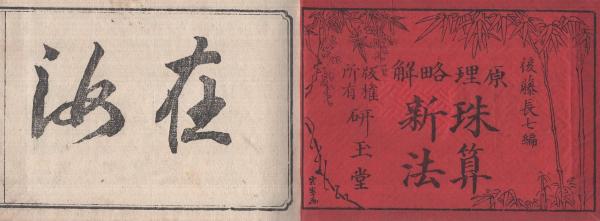 後藤長七編
原理略解
珠算
新法
版権
所有
研玉堂
在汝